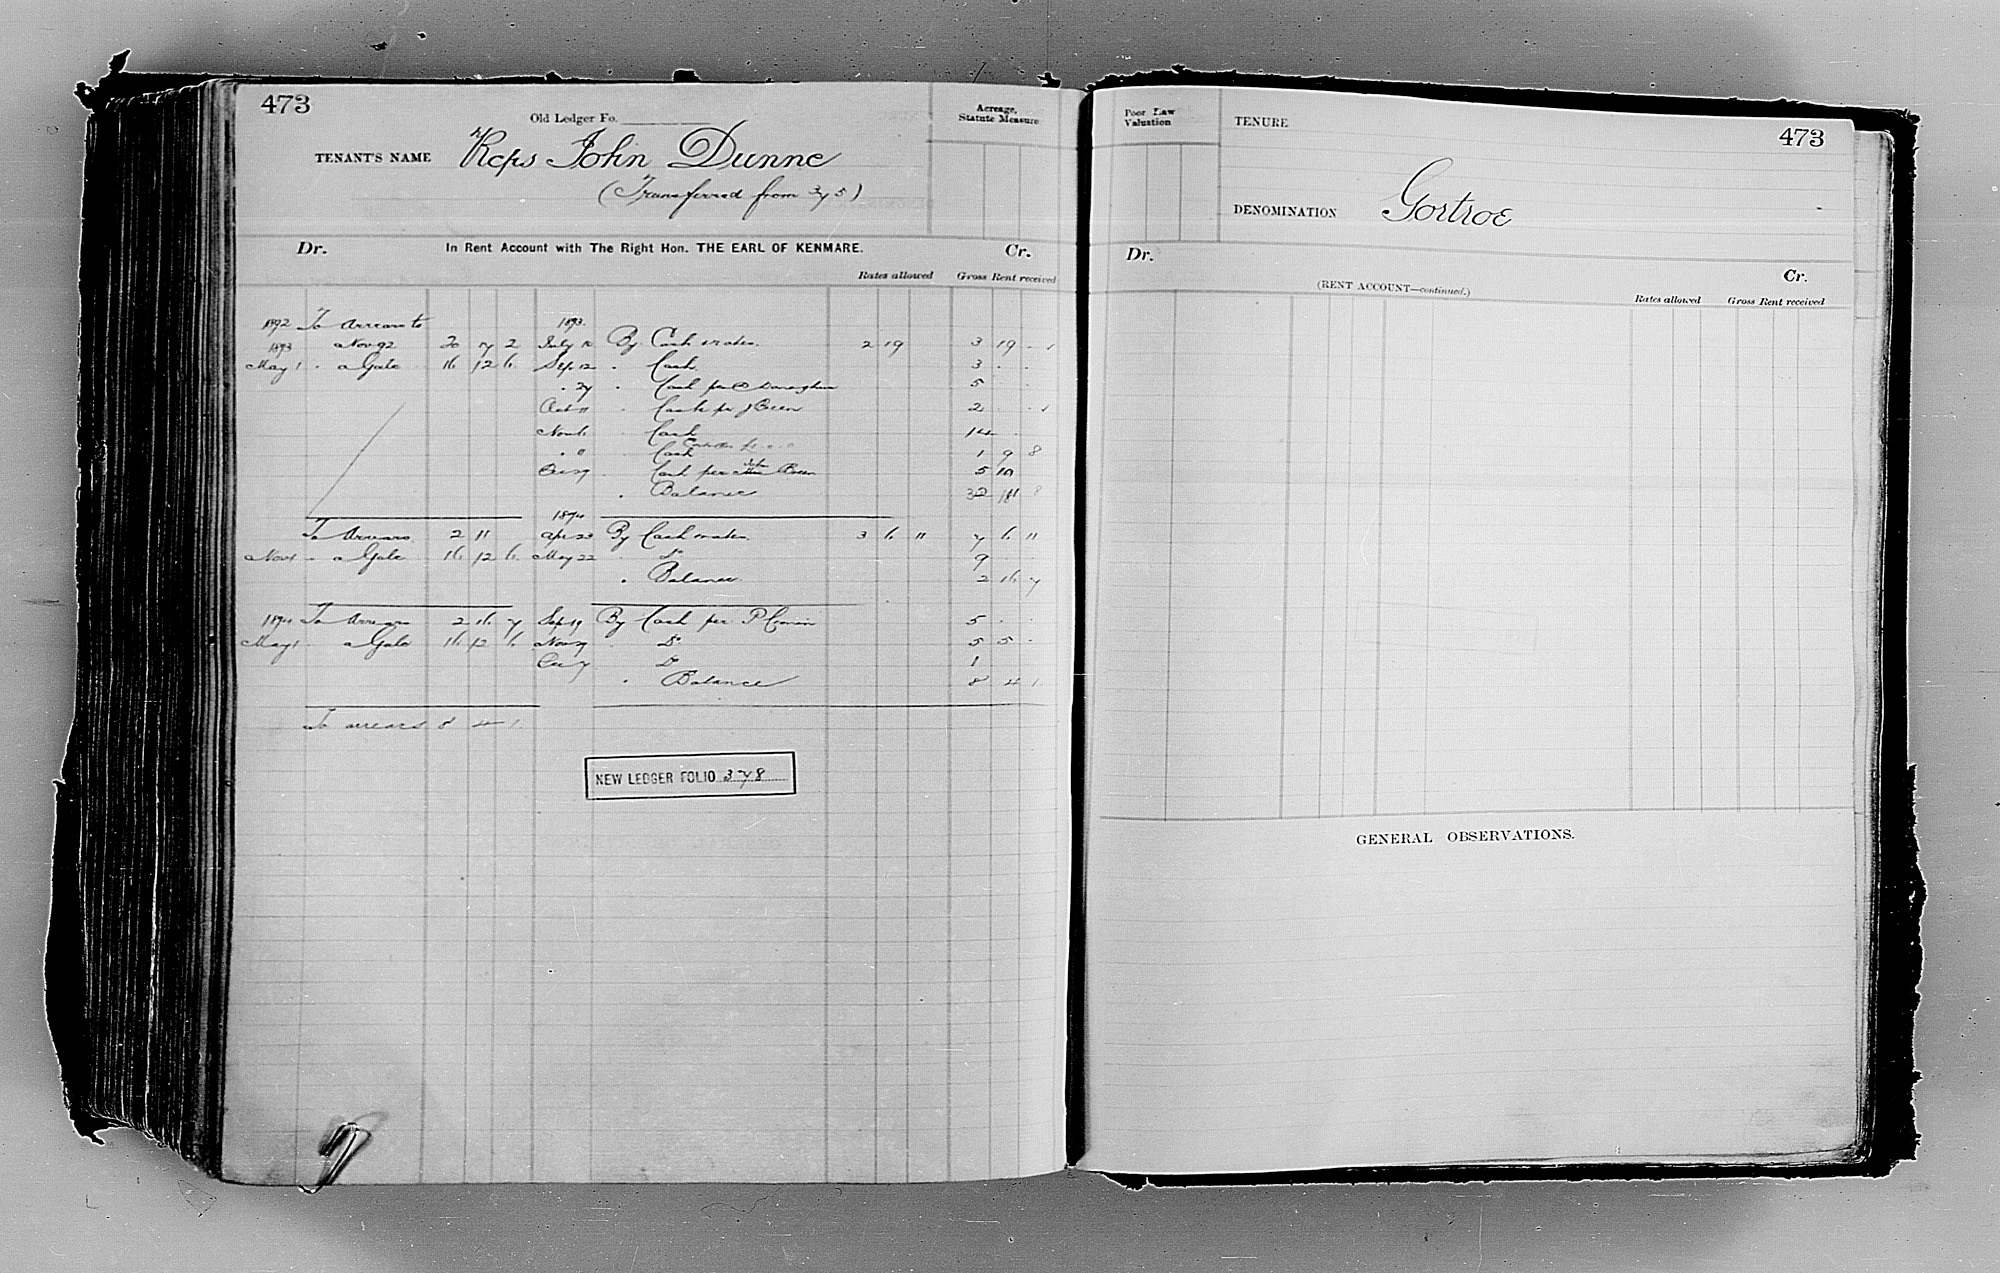 473
Old Ledger Fo.
Acreage,
Statute Measure
TENANT'S NAME Reps John Dunne
(Transferred from 375)
Dr. In Rent Account with The Right Hon. THE EARL OF KENMARE. Cr.
Rates allowed Gross Rent received
1892 To Arrears to 1893
1893 Nov 92 20 7 2 July By Cash & rates 2 19 3 19
May 1 a Gale 16 12 6 Sep 12 Cash 3
27 Cash per 5
Oct 11 Cash per J Breen 2
Nov Cash 14
Cash 1 9 8
Cash per John Breen 5 10
Balance 32
1894
To Arrears 2 11 Apr 23 By Cash & rates 3 6 11 7 6 11
Nov 1 a Gale 16 12 6 May 22 Do 9
Balance 2 16 7
1894 To Arrears 2 16 7 Sep 19 By Cash per P Cronin 5
May 1 a Gale 16 12 6 Nov Do 5 5
Dec 7 Do 1
Balance 8 4 1
To arrears 8 4 1
NEW LEDGER FOLIO 378
Poor Law
Valuation
TENURE
473
DENOMINATION Gortroe
Dr.
Cr.
(RENT ACCOUNT—continued.)
Rates allowed Gross Rent received
GENERAL OBSERVATIONS.